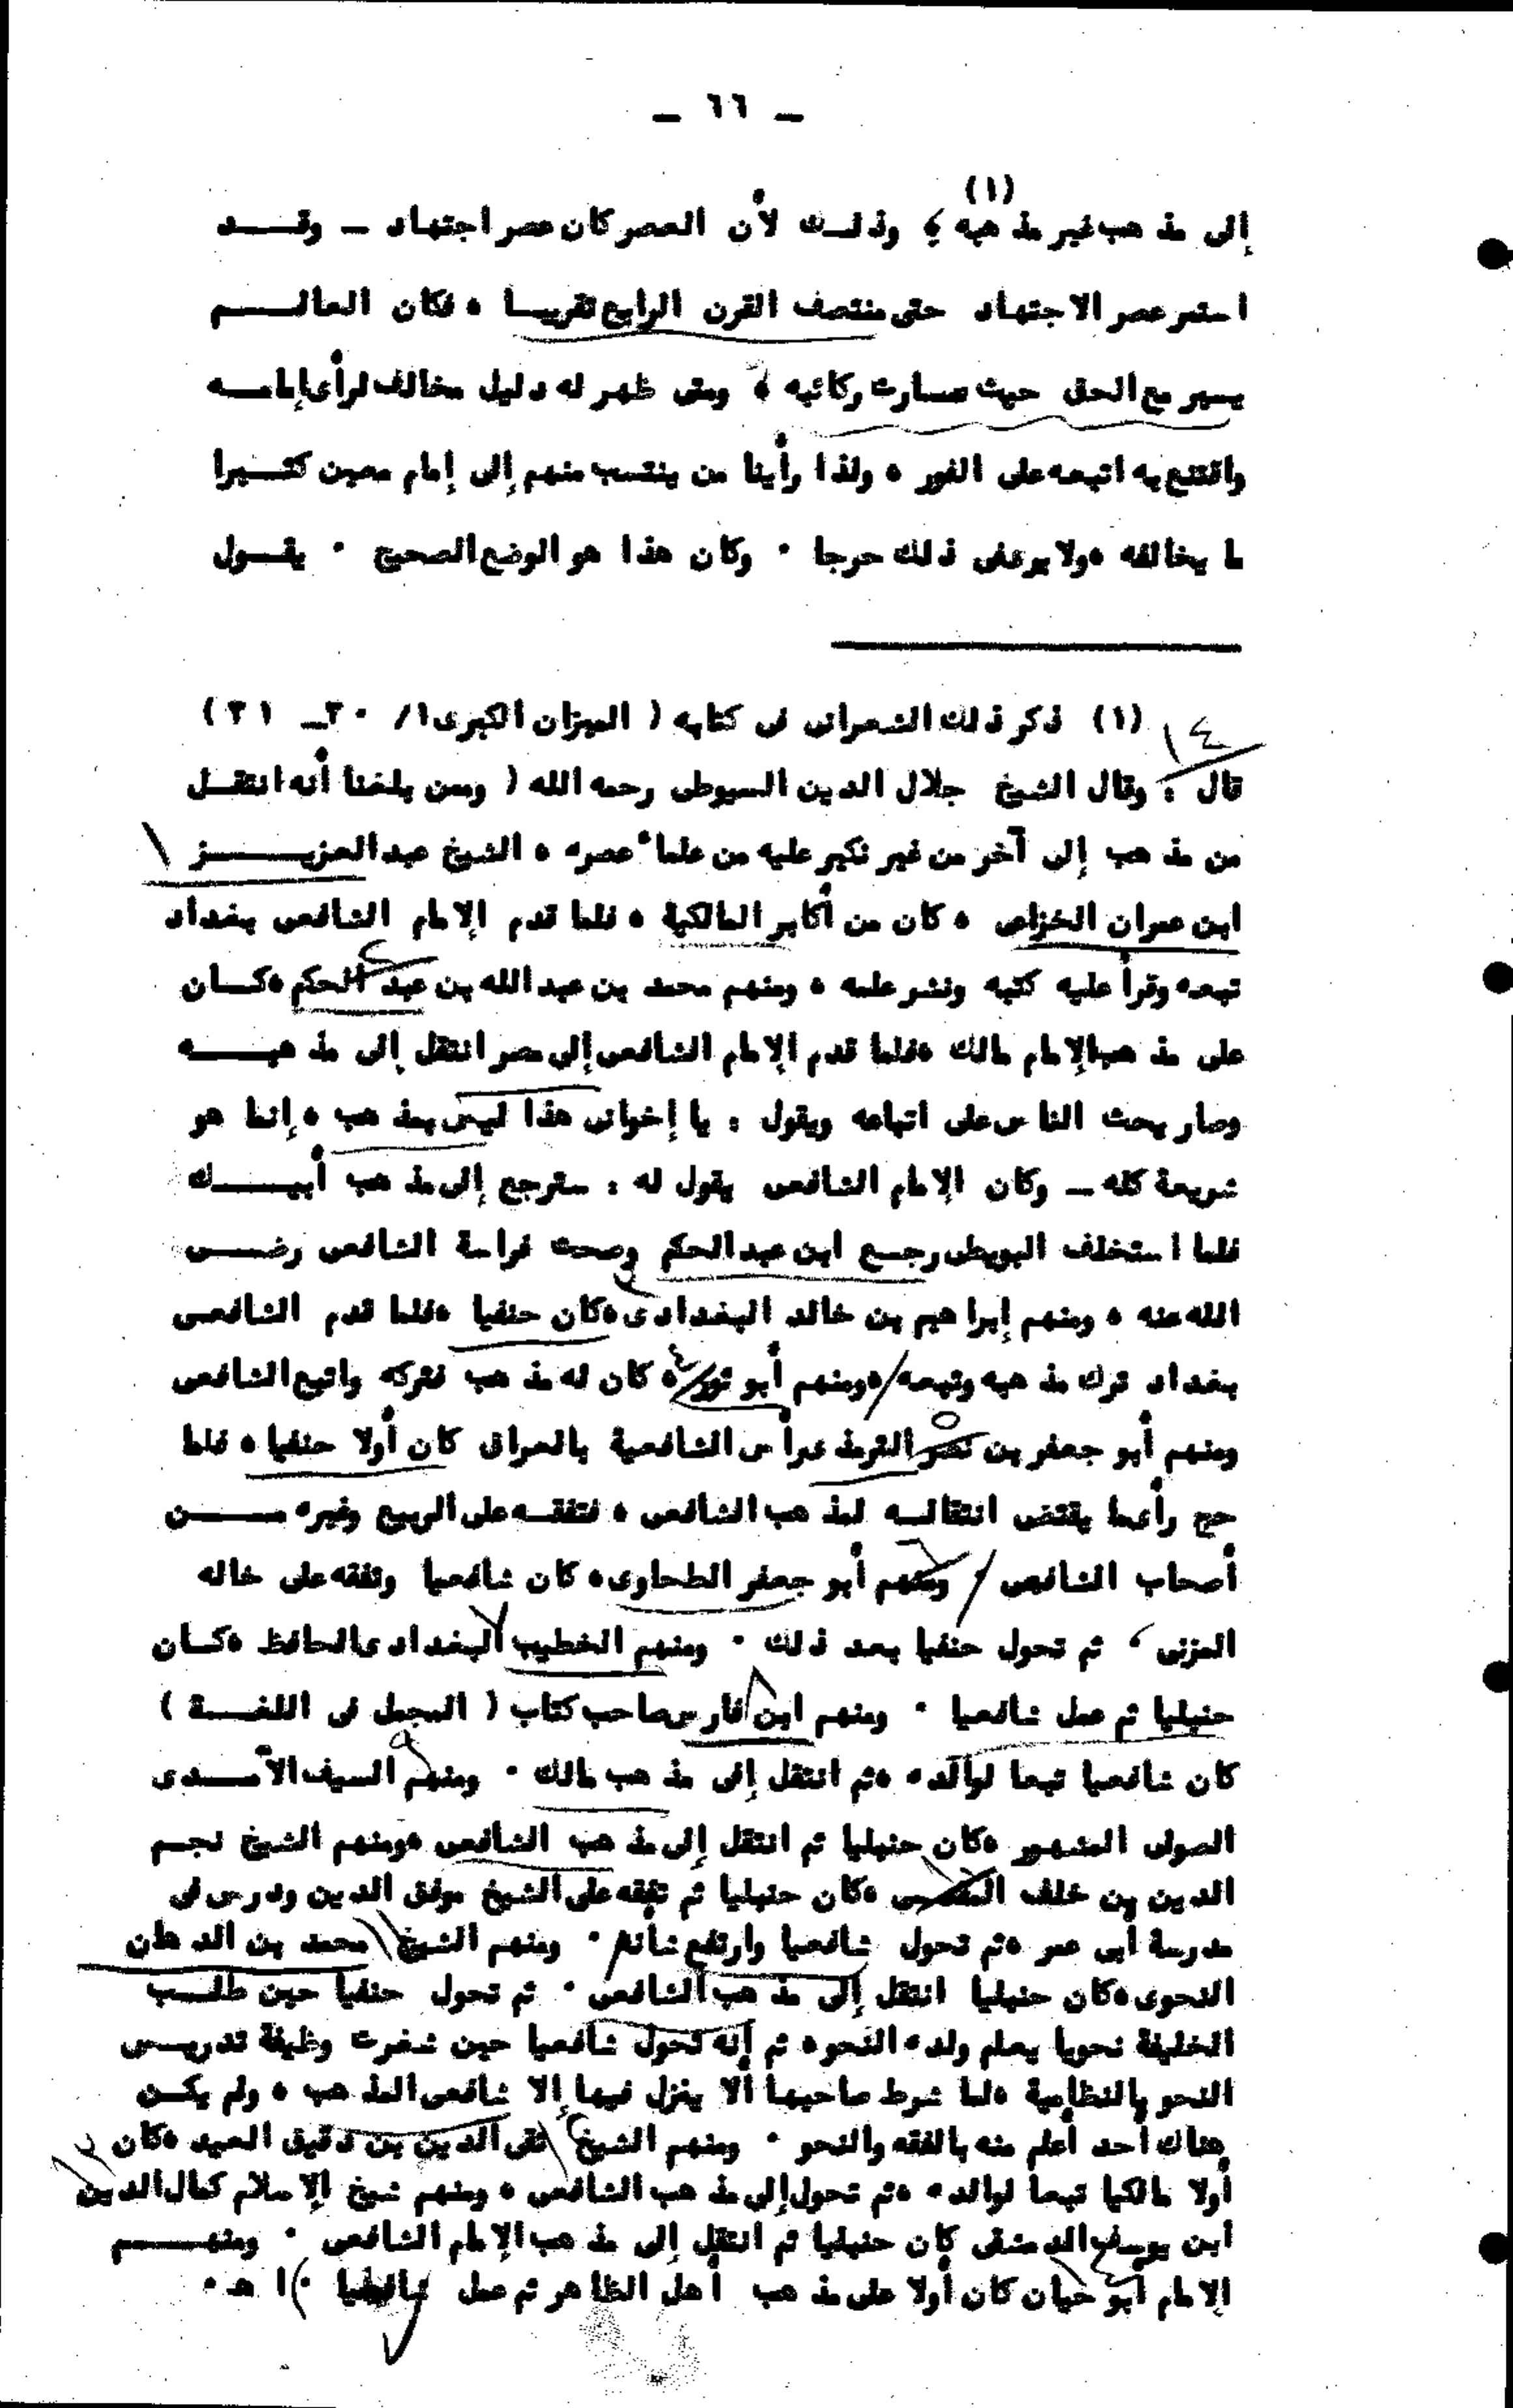 ـ ٦٦ ـ
إلى مذهب غير مذهبه (١) ، وذلك لأن العصر كان عصر اجتهاد ـ وقد
استمر عصر الاجتهاد حتى منتصف القرن الرابع تقريبا ، فكان العالم
يسير مع الحق حيث سارت ركائبه ، ومتى ظهر له دليل مخالف لرأى إمامه
واقتنع به اتبعه على الفور ، ولذا رأينا من ينتسب منهم إلى إمام معين كثيرا
ما يخالفه ، ولا يرى فى ذلك حرجا . وكان هذا هو الوضع الصحيح . يقول
(١) ذكر ذلك الشعرانى فى كتابه ( الميزان الكبرى ١/ ٣٠ ـ ٣١ )
قال : وقال الشيخ جلال الدين السيوطى رحمه الله ( وممن بلغنا أنه انتقل
من مذهب إلى آخر من غير نكير عليه من علماء عصره ، الشيخ عبد العزيز
ابن عمران الخزاعى ، كان من أكابر المالكية ، فلما قدم الإمام الشافعى بغداد
تبعه وقرأ عليه كتبه ونشر علمه ، ومنهم محمد بن عبد الله بن عبد الحكم ، كان
على مذهب الإمام مالك ، فلما قدم الإمام الشافعى إلى مصر انتقل إلى مذهبه
وصار يحث الناس على اتباعه ويقول : يا إخوانى هذا ليس بمذهب ، إنما هو
شريعة كله ـ وكان الإمام الشافعى يقول له : سترجع إلى مذهب أبيك
فلما استخلف البويطى رجع ابن عبد الحكم وصحت فراسة الشافعى رضى
الله عنه ، ومنهم إبراهيم بن خالد البغدادى ، كان حنفيا ، فلما قدم الشافعى
بغداد ترك مذهبه وتبعه ، ومنهم أبو ثور ، كان له مذهب فتركه واتبع الشافعى
ومنهم أبو جعفر بن نصر الترمذى رأس الشافعية بالعراق كان أولا حنفيا ، فلما
حج رأى ما يقتضى انتقاله لمذهب الشافعى ، فتفقه على الربيع وغيره من
أصحاب الشافعى . ومنهم أبو جعفر الطحاوى ، كان شافعيا وتفقه على خاله
المزنى ، ثم تحول حنفيا بعد ذلك . ومنهم الخطيب البغدادى الحافظ ، كان
حنبليا ثم عمل شافعيا . ومنهم ابن فارس صاحب كتاب ( المجمل فى اللغة )
كان شافعيا تبعا لوالده ، ثم انتقل إلى مذهب مالك . ومنهم السيف الآمدى
الصولى المشهور ، كان حنبليا ثم انتقل إلى مذهب الشافعى ، ومنهم الشيخ نجم
الدين بن خلف المقدسى ، كان حنبليا ثم تفقه على الشيخ موفق الدين ودرس فى
مدرسة أبى عمر ، ثم تحول شافعيا وارتفع شأنه . ومنهم الشيخ محمد بن الدهان
النحوى ، كان حنبليا انتقل إلى مذهب الشافعى . ثم تحول حنفيا حين طلب
الخليفة نحويا يعلم ولده النحو ، ثم إنه تحول شافعيا حين شغرت وظيفة تدريس
النحو بالنظامية ، لما شرط صاحبها ألا ينزل فيها إلا شافعى المذهب ، ولم يكن
هناك أحد أعلم منه بالفقه والنحو . ومنهم الشيخ تقى الدين بن دقيق العيد ، كان
أولا مالكيا تبعا لوالده ، ثم تحول إلى مذهب الشافعى ، ومنهم شيخ الإسلام كمال الدين
ابن يوسف الدمشقى كان حنبليا ثم انتقل إلى مذهب الإمام الشافعى . ومنهم
الإمام أبو حيان كان أولا على مذهب أهل الظاهر ثم عمل شافعيا . ) ا هـ .